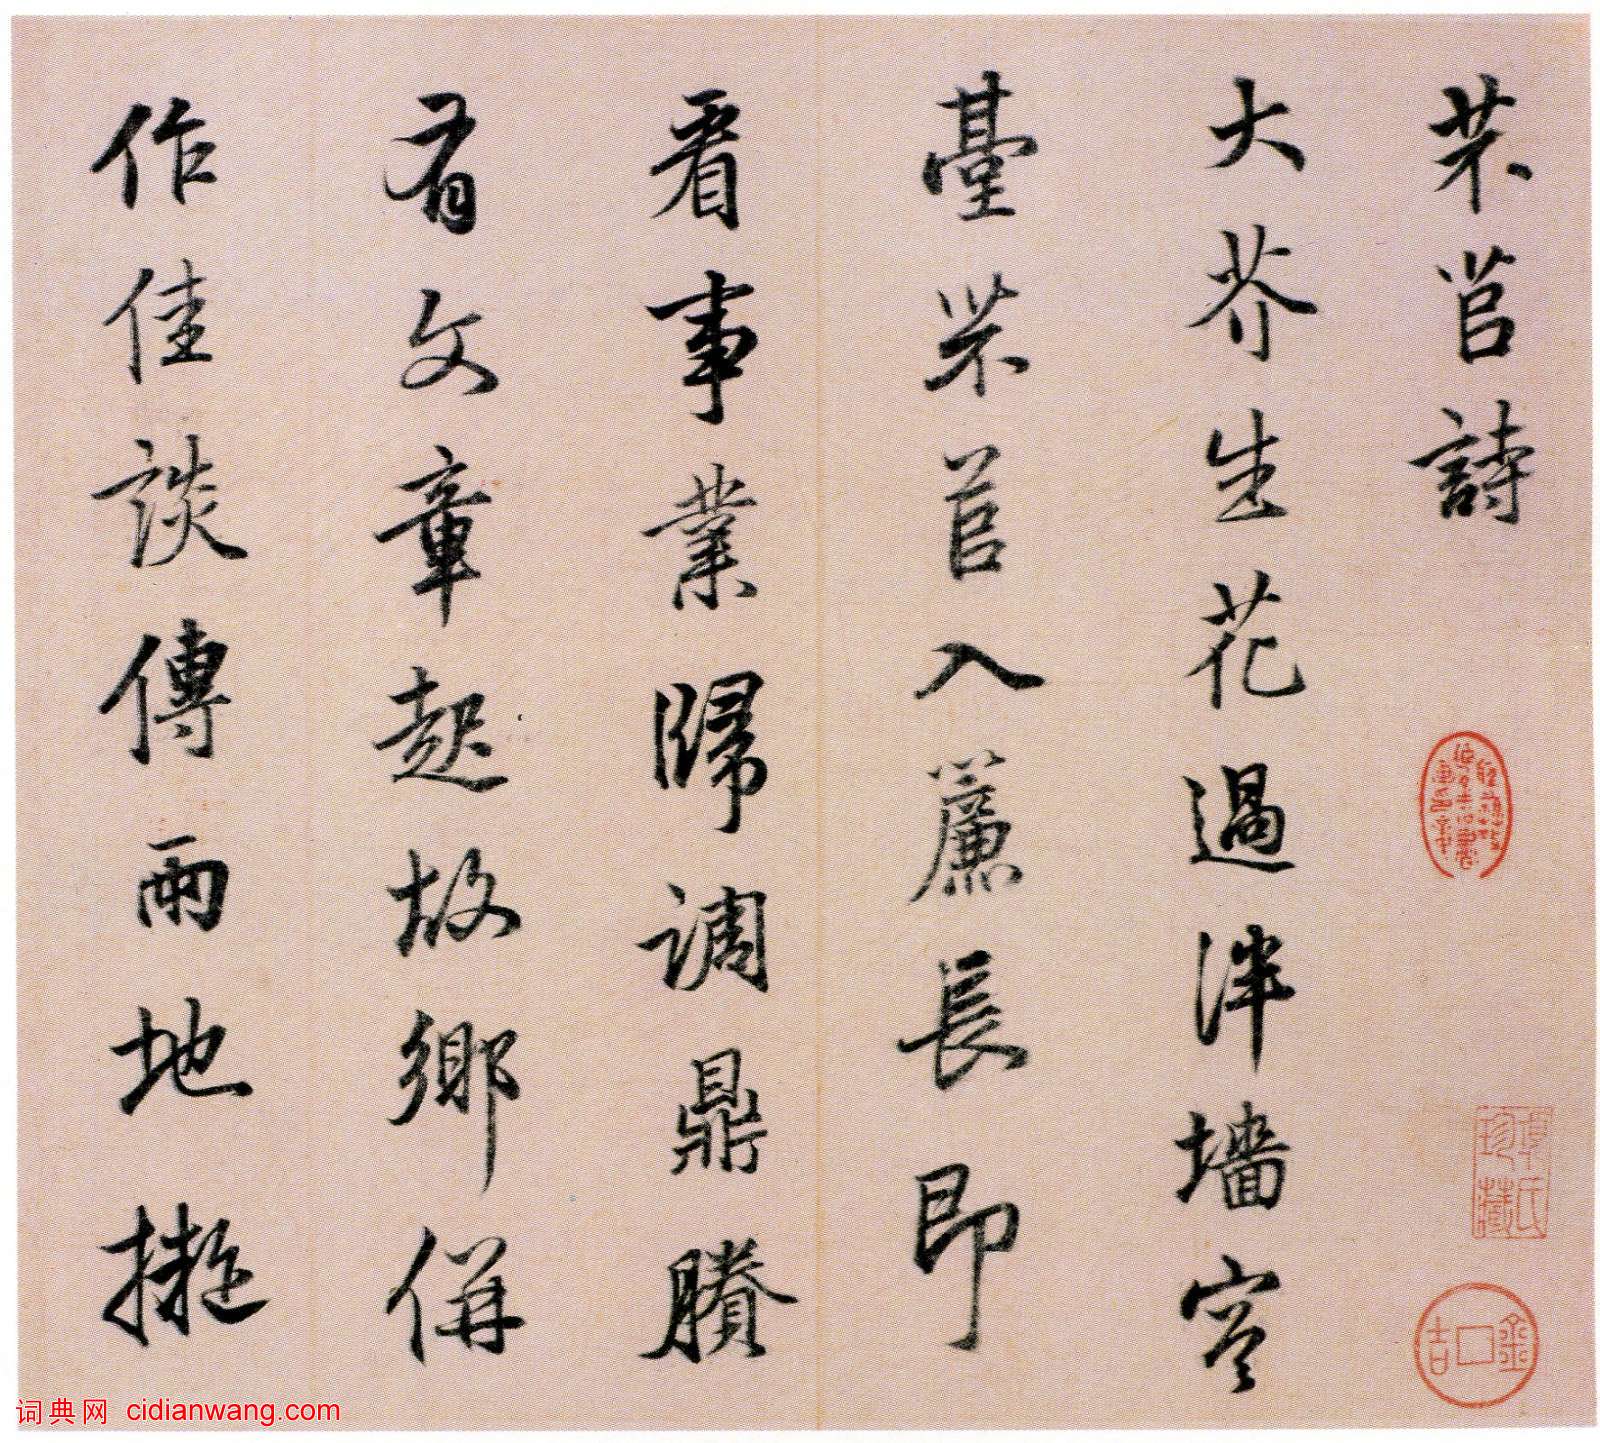 芣苢詩
大芥生花過泮墻
臺芣苢入簾長即
看事業歸調鼎賸
有文章起故鄉併
作佳談傳兩地擬
項氏珍藏
词典网 cidianwang.com